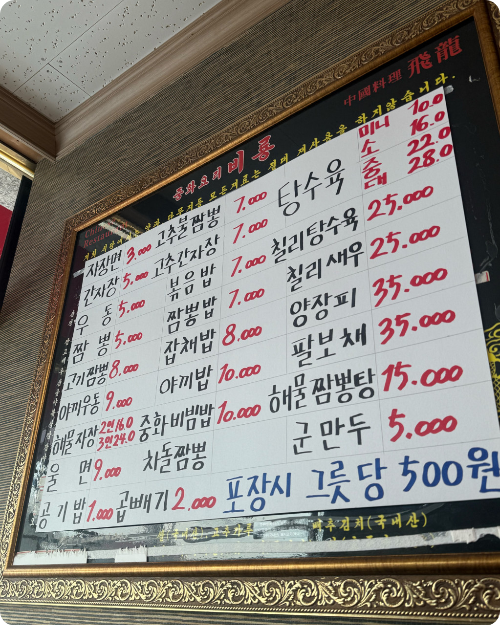 中國料理 飛龍
중화요리 비룡
자장면 3.000 고추불짬뽕 7.000 탕수육 미니 10.0
소 16.0
중 22.0
대 28.0
간자장 5.000 고추간자장 7.000
우동 5.000 볶음밥 7.000 칠리탕수육 25.000
짬뽕 5.000 짬뽕밥 7.000 칠리새우 25.000
고기짬뽕 8.000 잡채밥 8.000 양장피 35.000
야끼우동 9.000 야끼밥 10.000 팔보채 35.000
해물자장 2인 16.0 3인 24.0 중화비빔밥 10.000 해물짬뽕탕 15.000
울면 9.000 차돌짬뽕 군만두 5.000
공기밥 1.000 곱빼기 2.000 포장시 그릇당 500원
배추김치(국내산)